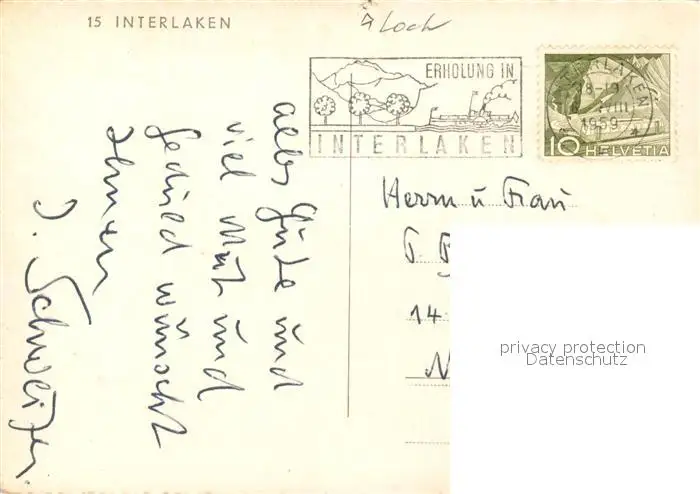 15 INTERLAKEN
Loch
ERHOLUNG IN
INTERLAKEN
INTERLAKEN
18-19
VIII
1959
10 HELVETIA
alles Gute und
viel Mut und
Geduld wünscht
Ihnen
J. Schweizer.
Herrn u Frau
14
N
privacy protection
Datenschutz